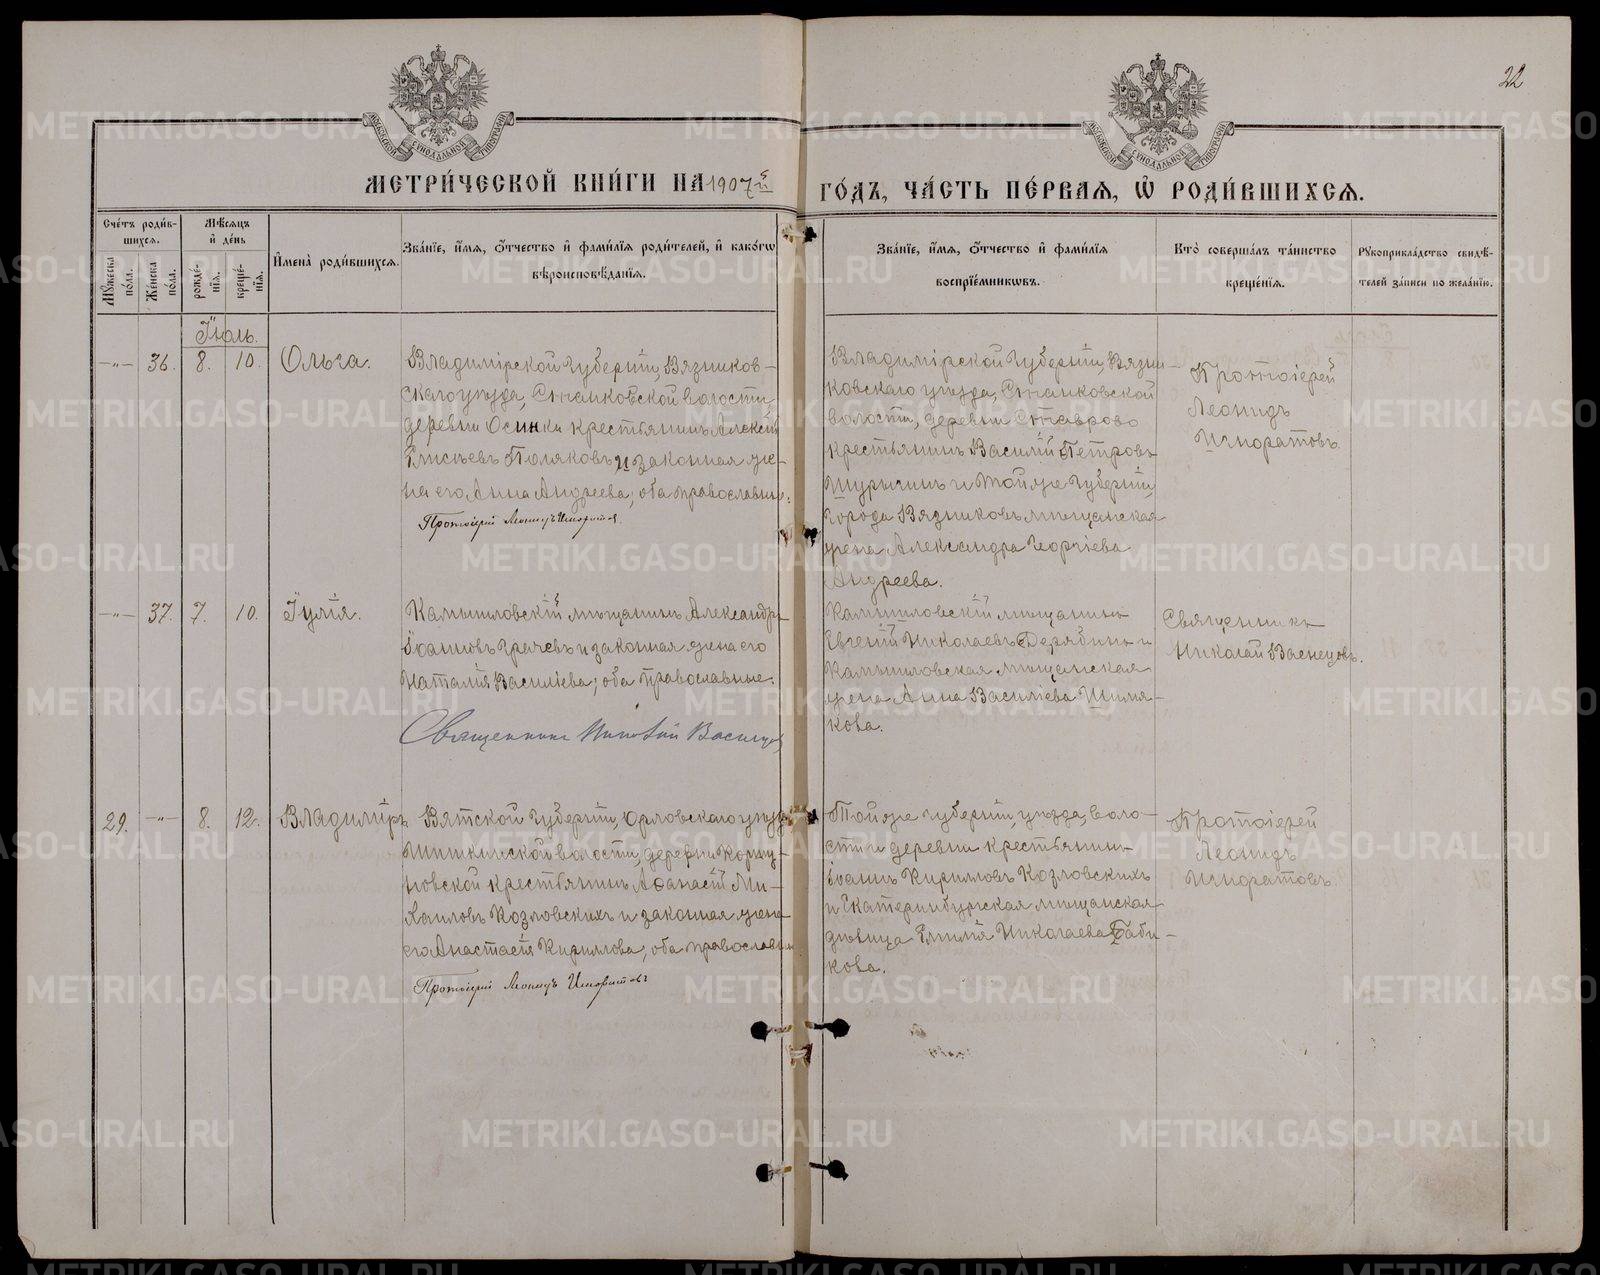 22
МОСКОВСКОЙ СУНОДАЛЬНОЙ ТИПОГРАФІИ
МОСКОВСКОЙ СУНОДАЛЬНОЙ ТИПОГРАФІИ
МЕТРИ́ЧЕСКОЙ КНИ́ГИ НА 1907й
ГО́ДЪ, ЧА́СТЬ ПЕ́РВАѦ, Ѡ҆ РОДИ́ВШИХСѦ.
Сче́тъ роди́в-
шихсѧ.
Мꙋ́жеска по́ла.
Же́нска по́ла.
Мѣ́сѧцъ
и҆ де́нь
рожде́-
нїѧ.
креще́-
нїѧ.
И҆мена̀ роди́вшихсѧ.
Зва́нїе, и҆́мѧ, ѻ҆́тчество и҆ фами́лїѧ роди́телей, и҆ како́гѡ
вѣроисповѣ́данїѧ.
Зва́нїе, и҆́мѧ, ѻ҆́тчество и҆ фами́лїѧ
воспрїе́мникѡвъ.
Кто̀ соверша́лъ та́инство
креще́нїѧ.
Рꙋкоприкла́дство свидѣ́-
телей за́писи по жела́нїю.
Іюль.
—"— 36. 8. 10. Ольга.
Владимірской губерніи, Вязников-
скаго уѣзда, Станковской волости
деревни Осинки крестьянинъ Алексѣй
Елисѣевъ Поляковъ и законная же-
на его Анна Андреева; оба православные.
Протоіерей Леонидъ Игноратовъ
Владимірской губерніи, Вязни-
ковскаго уѣзда, Станковской
волости, деревни Ставрово
крестьянинъ Василій Петровъ
Шурыгинъ и той же губерніи,
города Вязниковъ мѣщанская
жена Александра Георгіева
Андреева.
Протоіерей
Леонидъ
Игноратовъ.
—"— 37. 7. 10. Іулія.
Камышловскій мѣщанинъ Александръ
Іоанновъ Грачевъ и законная жена его
Наталія Василіева; оба православные.
Священникъ Николай Васнецовъ
Камышловскій мѣщанинъ
Евгеній Николаевъ Дерябинъ и
Камышловская мѣщанская
жена Анна Василіева Шиша-
кова.
Священникъ
Николай Васнецовъ.
29. —"— 8. 12. Владиміръ
Вятской губерніи, Орловскаго уѣзда
волости, деревни
крестьянинъ Аѳанасій Ми-
хаиловъ Козловскихъ и законная жена
его Анастасія Кириллова, оба православные
Протоіерей Леонидъ Игноратовъ
Той же губерніи, уѣзда, воло-
сти и деревни крестьянинъ
Іоаннъ Кирилловъ Козловскихъ
и Екатеринбургская мѣщанская
дѣвица Емилія Николаева Баби-
кова.
Протоіерей
Леонидъ
Игноратовъ.
METRIKI.GASO-URAL.RU